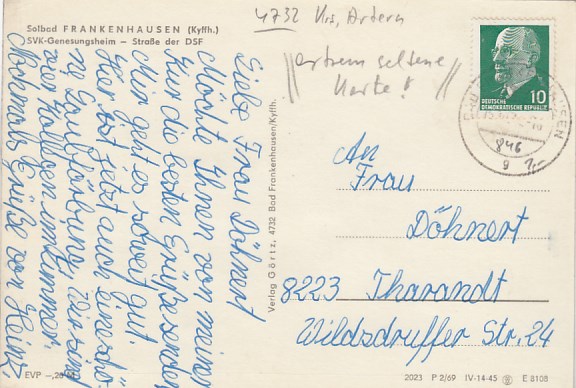 Solbad FRANKENHAUSEN (Kyffh.)
SVK-Genesungsheim – Straße der DSF
4732 Krs. Artern
extrem seltene
Karte!
10
DEUTSCHE
DEMOKRATISCHE REPUBLIK
846
9 1,-
Liebe Frau Döhnert
Möchte Ihnen von meiner
Kur die besten Grüße senden
Mir geht es soweit gut.
Hier ist jetzt auch eine schö-
ne Laubfärbung. Wir sind
zwei Kollegen im Zimmer.
Nochmals Grüße von Heinz
Verlag Görtz, 4732 Bad Frankenhausen/Kyffh.
An
Frau
Döhnert
8223 Tharandt
Wilsdruffer Str. 24
EVP –,20 M
2023 P 2/69 IV-14-45 E 8108